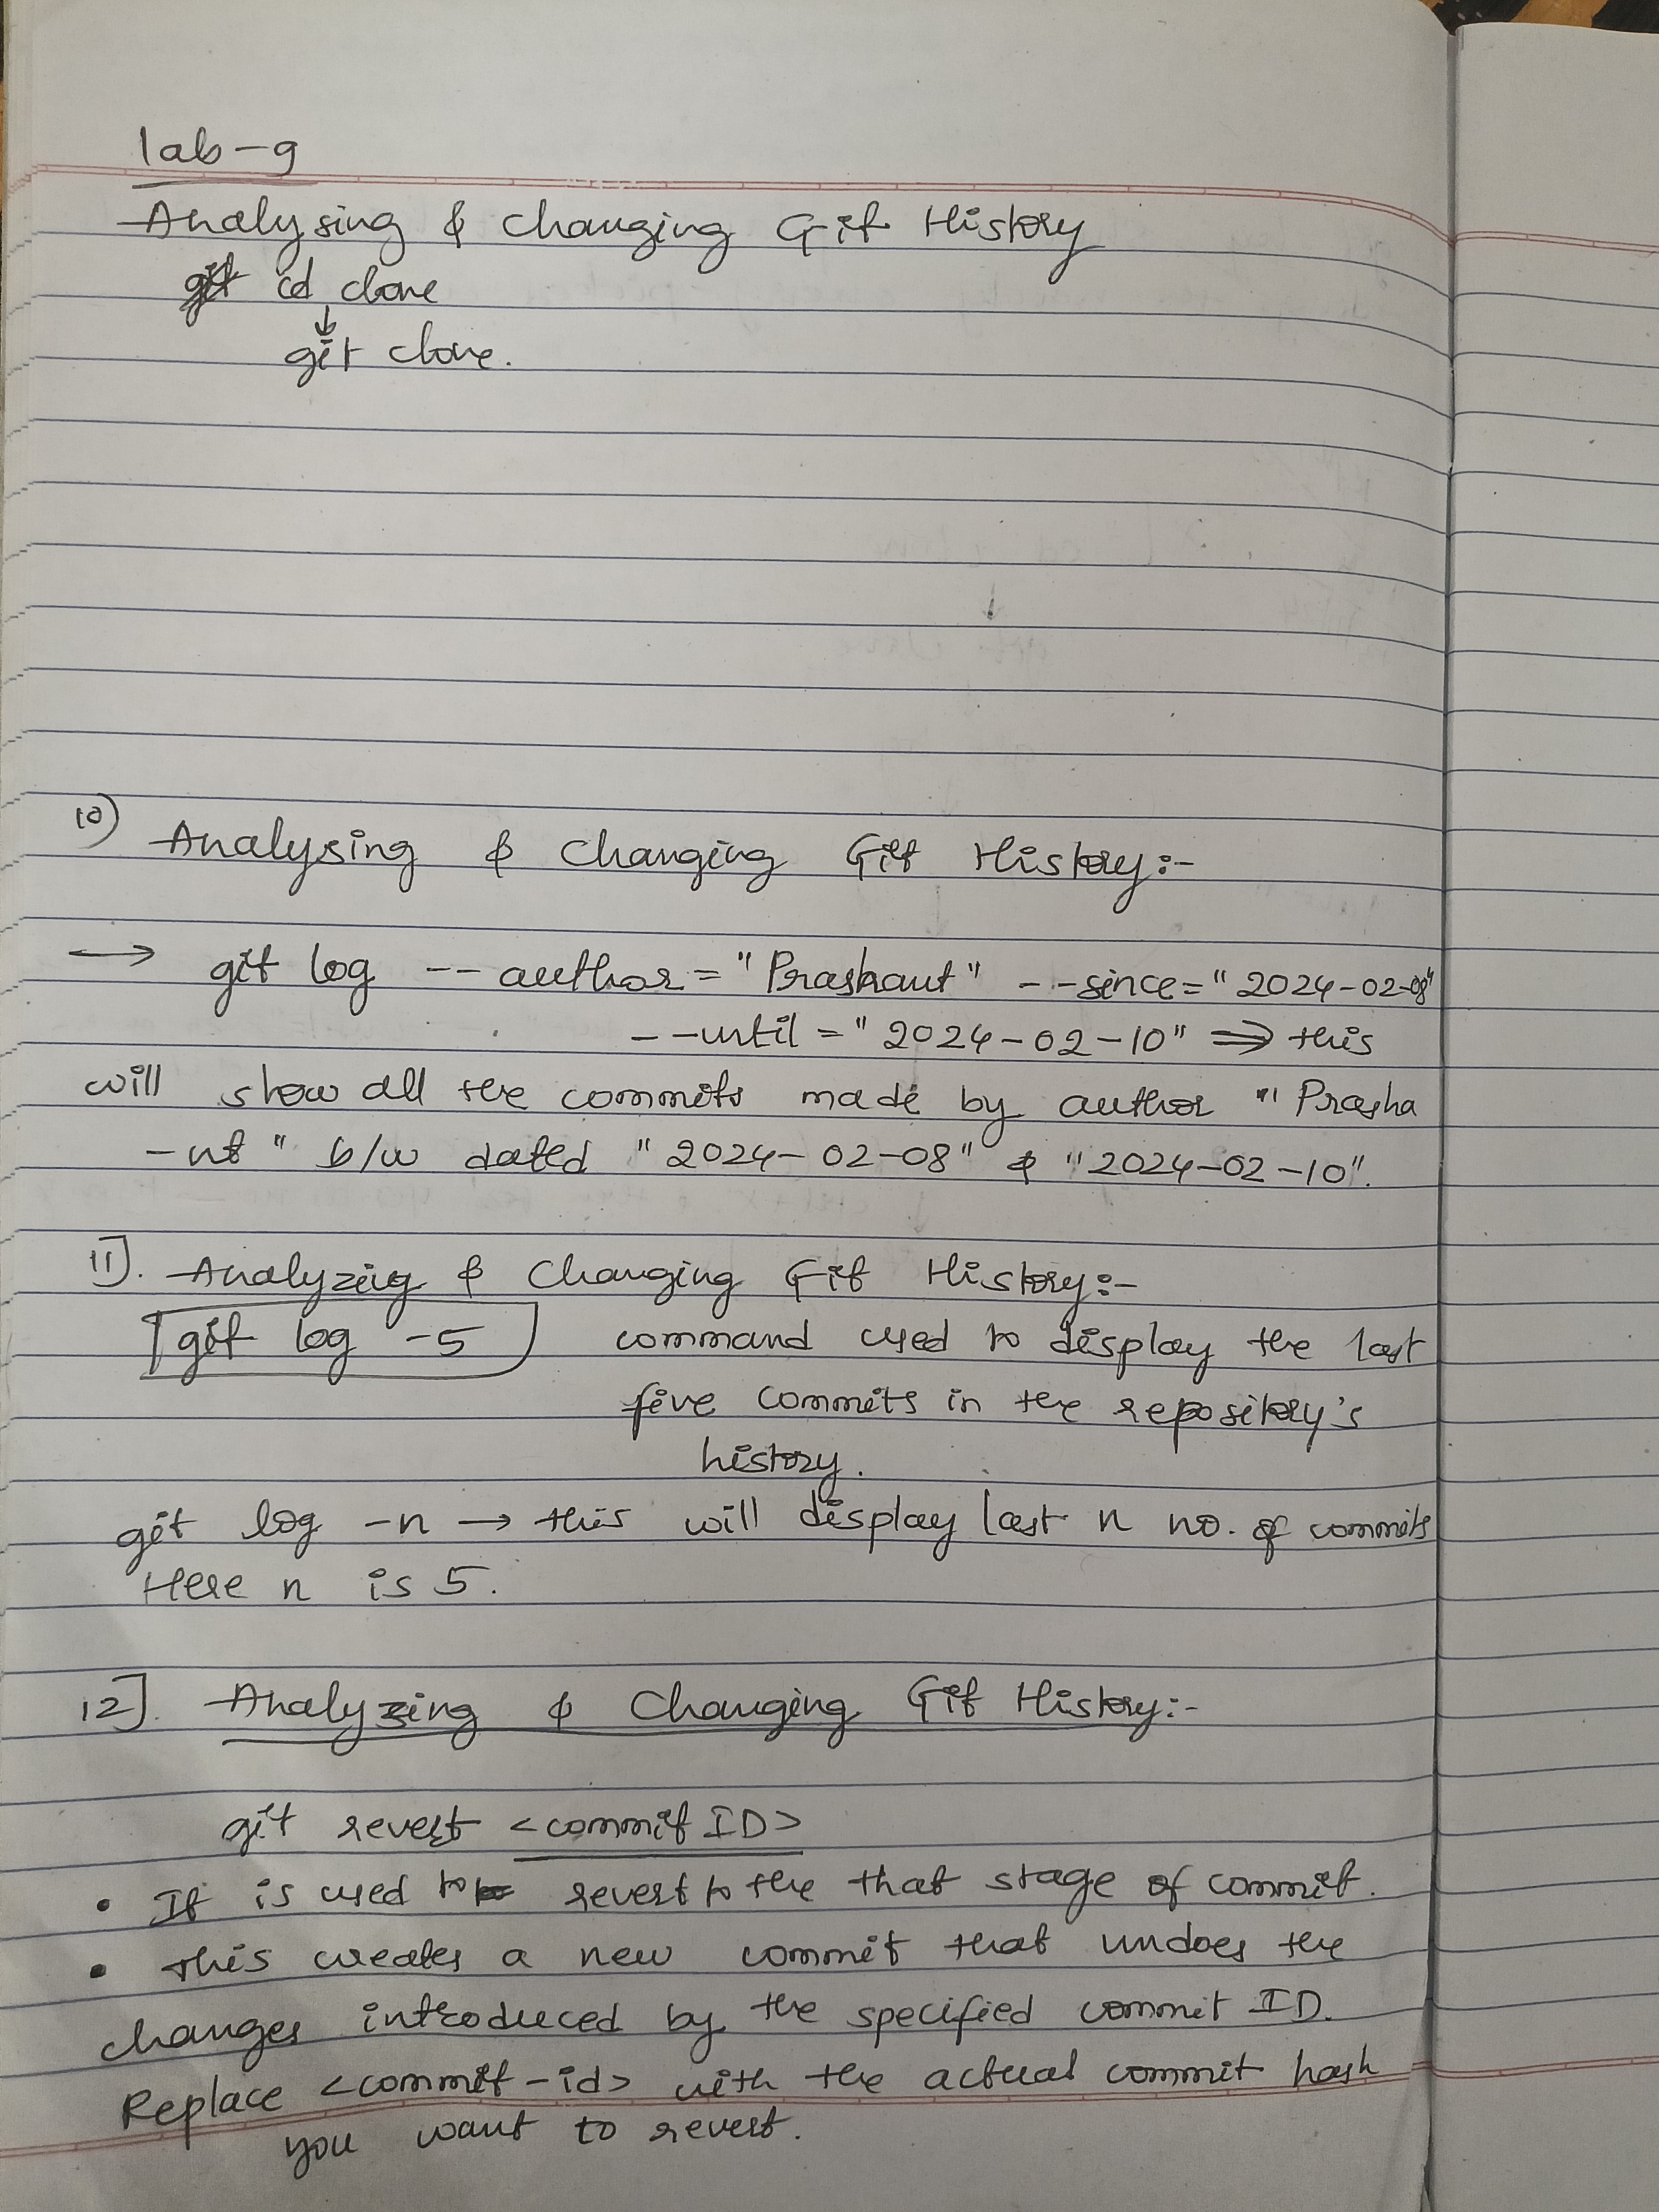 lab-9
Analysing & Changing Git History
cd clone
git clone.
10) Analysing & Changing Git History:-
→ git log --author="Prashant" --since="2024-02-08"
--until="2024-02-10" ⇒ this
will show all the commits made by author "Prasha
-nt" b/w dated "2024-02-08" & "2024-02-10".
11]. Analyzing & Changing Git History:-
git log -5 command used to display the last
five commits in the repository's
history.
git log -n → this will display last n no. of commits
Here n is 5.
12]. Analyzing & Changing Git History:-
git revert <commit ID>
• It is used to revert to the that stage of commit.
• This creates a new commit that undoes the
changes introduced by the specified commit ID.
Replace <commit-id> with the actual commit hash
you want to revert.